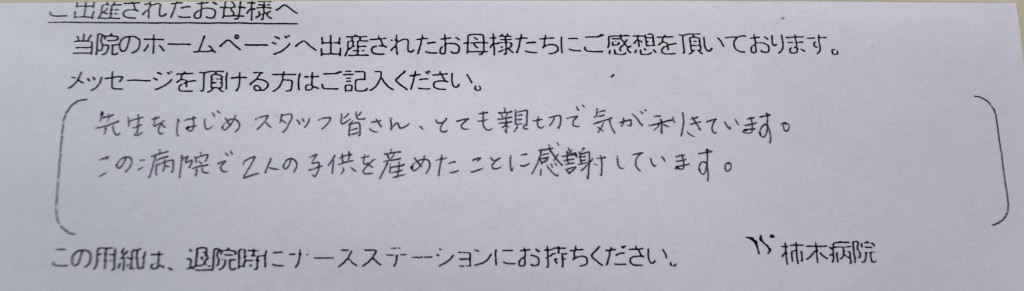 ご出産されたお母様へ
当院のホームページへ出産されたお母様たちにご感想を頂いております。
メッセージを頂ける方はご記入ください。
先生をはじめスタッフ皆さん、とても親切で気が利きています。
この病院で2人の子供を産めたことに感謝しています。
この用紙は、退院時にナースステーションにお持ちください。 柿木病院